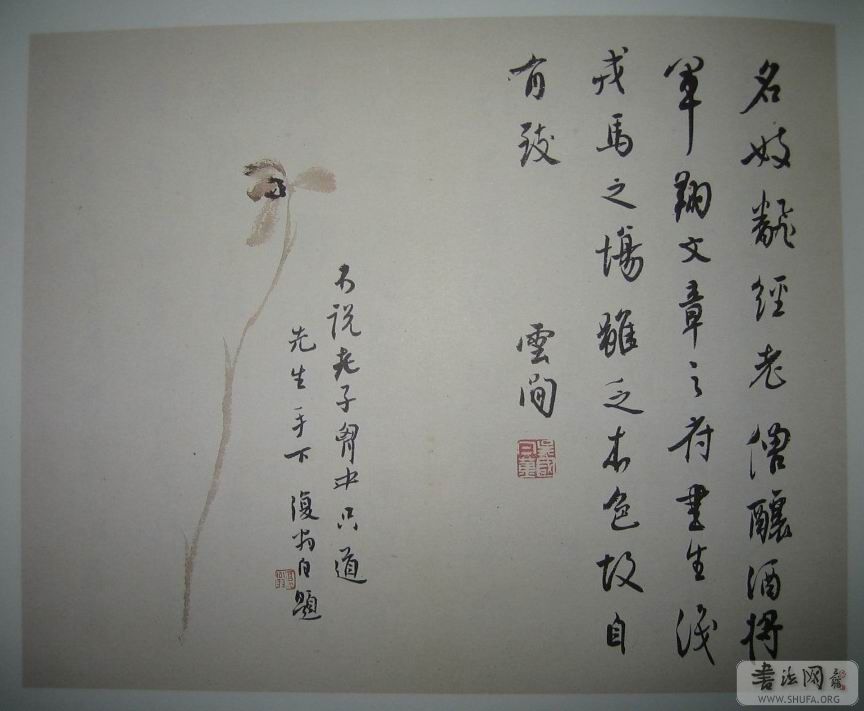 名妓飜經老僧釀酒將
軍翔文章之府書生淺
戎馬之場雖乏本色故自
有致 雲間
不說老子胸中只道
先生手下 復自題
書法网
WWW.SHUFA.ORG